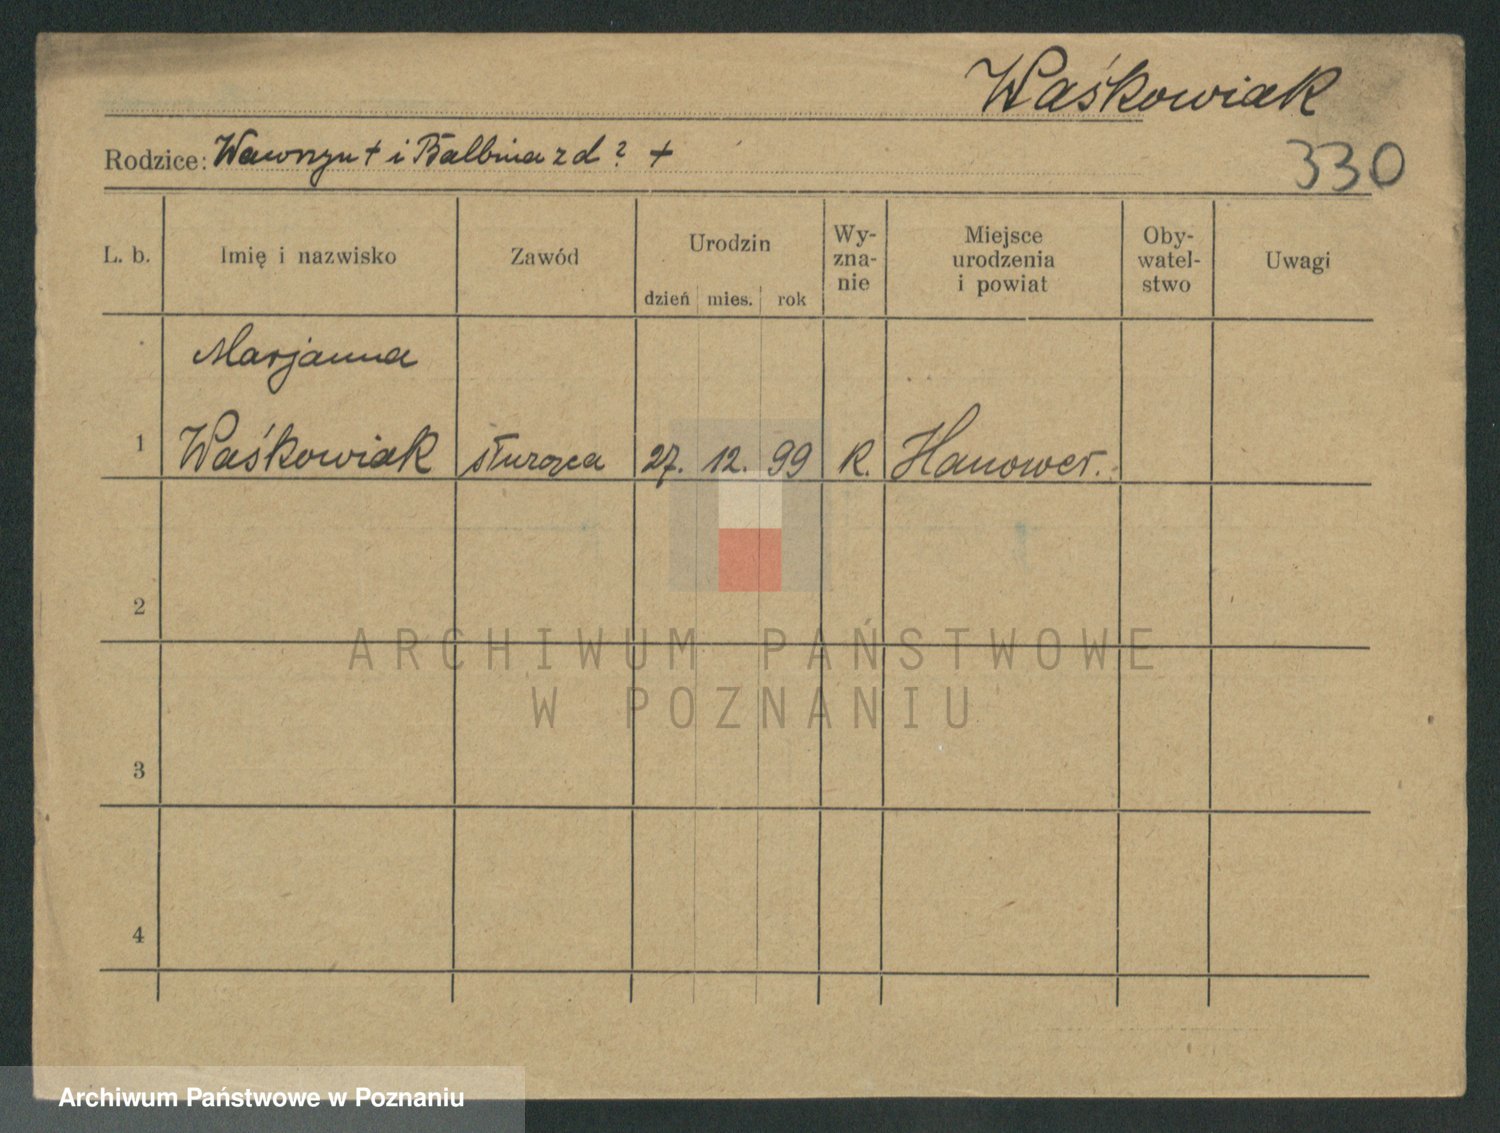 Waśkowiak
Rodzice: Wawrzyn + i Balbina z d ? +
330
L. b. Imię i nazwisko Zawód Urodzin dzień mies. rok Wy-zna-nie Miejsce urodzenia i powiat Oby-watel-stwo Uwagi
Marjanna
1 Waśkowiak służąca 27. 12. 99 R. Hanower.
2
ARCHIWUM PAŃSTWOWE
W POZNANIU
3
4
Archiwum Państwowe w Poznaniu